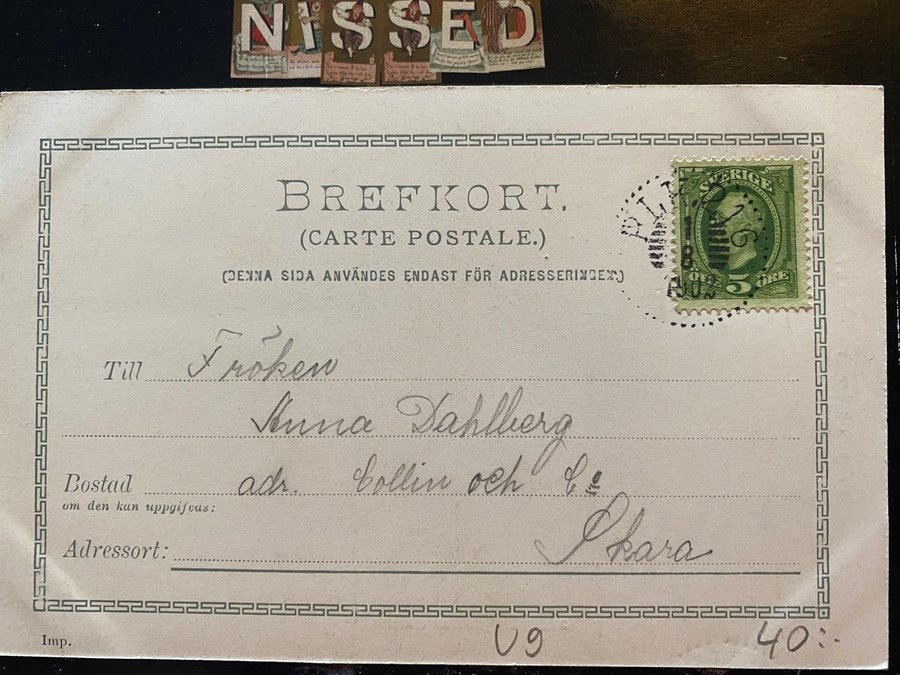 NISSED
BREFKORT.
(CARTE POSTALE.)
(DENNA SIDA ANVÄNDES ENDAST FÖR ADRESSERINGEN.)
SVERIGE
5 ÖRE
1903
Till Fröken
Anna Dahlberg
Bostad adr. Collin och Co
om den kan uppgifvas:
Skara
Adressort:
Imp.
U9 40:-